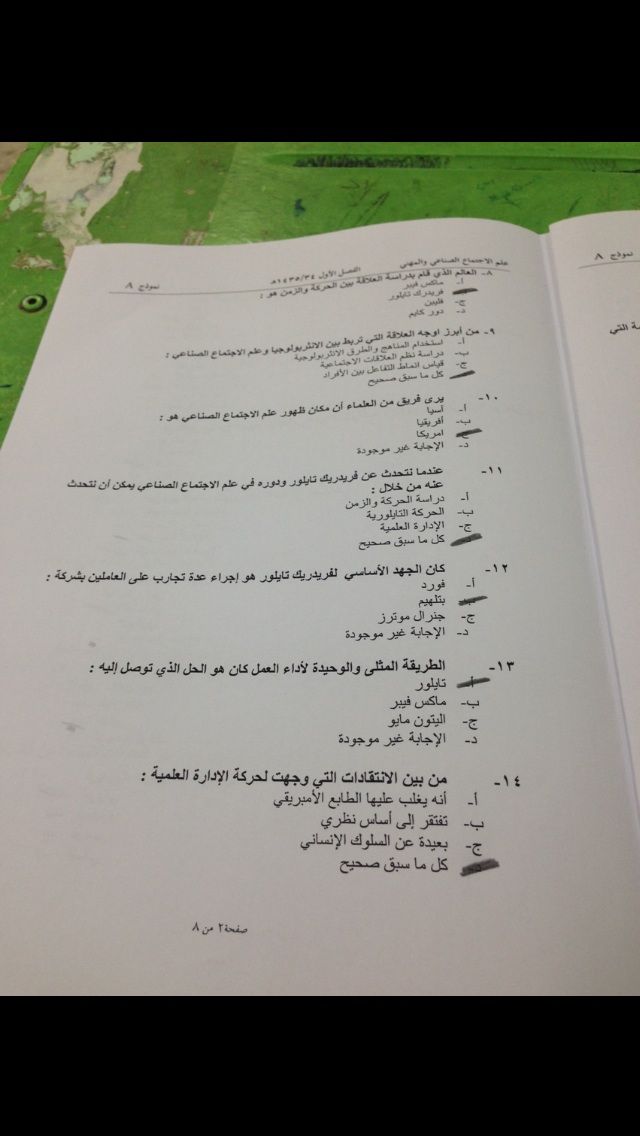 علم الاجتماع الصناعي والمهني الفصل الأول ١٤٣٥/٣٤هـ نموذج ٨
٨- العالم الذي قام بدراسة العلاقة بين الحركة والزمن هو :
أ- ماكس فيبر
فريدرك تايلور
ج- فلبين
د- دور كايم
٩- من أبرز اوجه العلاقة التي تربط بين الانثربولوجيا وعلم الاجتماع الصناعي :
أ- استخدام المناهج والطرق الانثربولوجية
ب- دراسة نظم العلاقات الاجتماعية
ج- قياس انماط التفاعل بين الأفراد
كل ما سبق صحيح
١٠- يرى فريق من العلماء أن مكان ظهور علم الاجتماع الصناعي هو :
أ- آسيا
ب- أفريقيا
ج- امريكا
د- الإجابة غير موجودة
١١- عندما نتحدث عن فريدريك تايلور ودوره في علم الاجتماع الصناعي يمكن أن نتحدث
عنه من خلال :
أ- دراسة الحركة والزمن
ب- الحركة التايلورية
ج- الإدارة العلمية
كل ما سبق صحيح
١٢- كان الجهد الأساسي لفريدريك تايلور هو إجراء عدة تجارب على العاملين بشركة :
أ- فورد
ب- بتلهيم
ج- جنرال موترز
د- الإجابة غير موجودة
١٣- الطريقة المثلى والوحيدة لأداء العمل كان هو الحل الذي توصل إليه :
أ- تايلور
ب- ماكس فيبر
ج- اليتون مايو
د- الإجابة غير موجودة
١٤- من بين الانتقادات التي وجهت لحركة الإدارة العلمية :
أ- أنه يغلب عليها الطابع الأمبريقي
ب- تفتقر إلى أساس نظري
ج- بعيدة عن السلوك الإنساني
د- كل ما سبق صحيح
صفحة٢ من ٨
نموذج ٨
ة التي